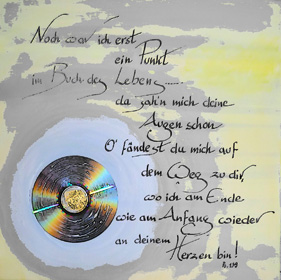 Noch war ich erst
ein Punkt
im Buch des Lebens.....
da sah'n mich deine
Augen schon
O' fändest du mich auf
dem Weg zu dir,
wo ich am Ende
wie am Anfang wieder
an deinem
Herzen bin!